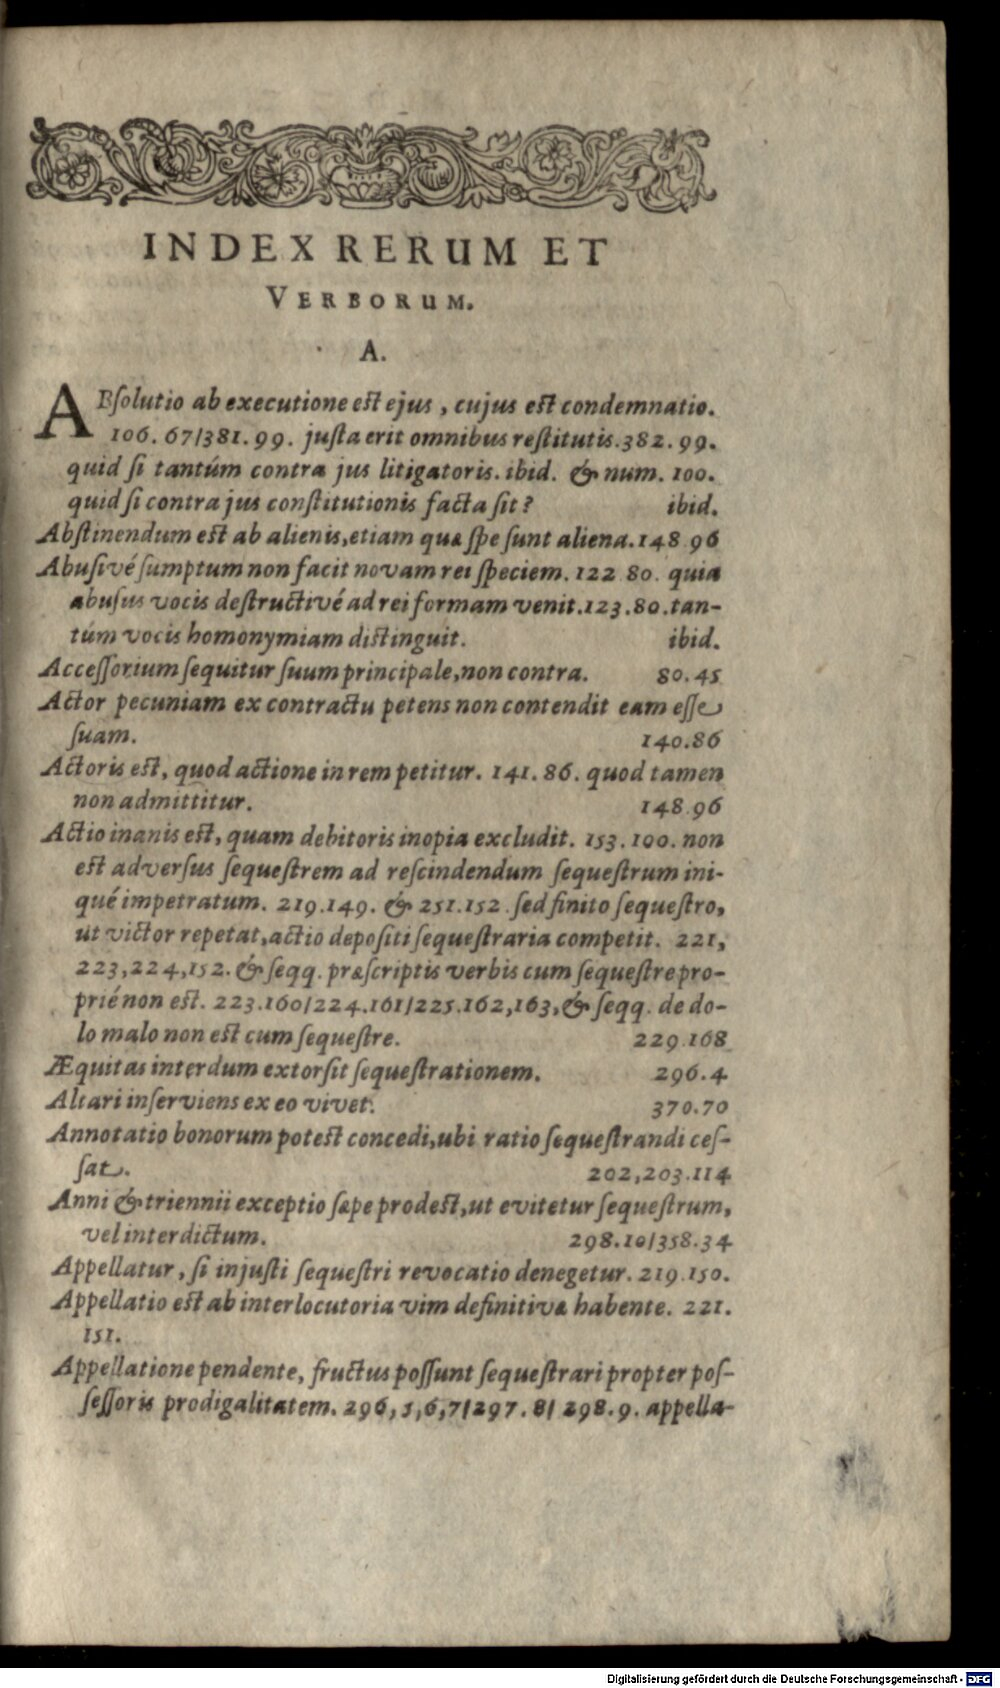 INDEX RERUM ET
VERBORUM.
A.
ABſolutio ab executione eſt ejus, cujus eſt condemnatio.
106. 67/381. 99. juſta erit omnibus reſtitutis. 382. 99.
quid ſi tantúm contra jus litigatoris. ibid. & num. 100.
quid ſi contra jus conſtitutionis facta ſit? ibid.
Abſtinendum eſt ab alienis, etiam quæ ſpe ſunt aliena. 148 96
Abuſivé ſumptum non facit novam rei ſpeciem. 122 80. quia
abuſus vocis deſtructivé ad rei formam venit. 123. 80. tan-
túm vocis homonymiam diſtinguit. ibid.
Acceſſorium ſequitur ſuum principale, non contra. 80. 45
Actor pecuniam ex contractu petens non contendit eam eſſe
ſuam. 140. 86
Actoris eſt, quod actione in rem petitur. 141. 86. quod tamen
non admittitur. 148. 96
Actio inanis eſt, quam debitoris inopia excludit. 153. 100. non
eſt adverſus ſequeſtrem ad reſcindendum ſequeſtrum ini-
qué impetratum. 219. 149. & 251. 152. ſed finito ſequeſtro,
ut victor repetat, actio depoſiti ſequeſtraria competit. 221,
223, 224, 152. & ſeqq. præſcriptis verbis cum ſequeſtre pro-
prié non eſt. 223. 160/224. 161/225. 162, 163, & ſeqq. de do-
lo malo non eſt cum ſequeſtre. 229. 168
Æquitas interdum extorſit ſequeſtrationem. 296. 4
Altari inſerviens ex eo vivet. 370. 70
Annotatio bonorum poteſt concedi, ubi ratio ſequeſtrandi ceſ-
ſat. 202, 203. 114
Anni & triennii exceptio ſæpe prodeſt, ut evitetur ſequeſtrum,
vel interdictum. 298. 10/358. 34
Appellatur, ſi injuſti ſequeſtri revocatio denegetur. 219. 150.
Appellatio eſt ab interlocutoria vim definitivæ habente. 221.
151.
Appellatione pendente, fructus poſſunt ſequeſtrari propter poſ-
ſeſſoris prodigalitatem. 296, 5, 6, 7/297. 8/ 298. 9. appella-
Digitalisierung gefördert durch die Deutsche Forschungsgemeinschaft - DFG